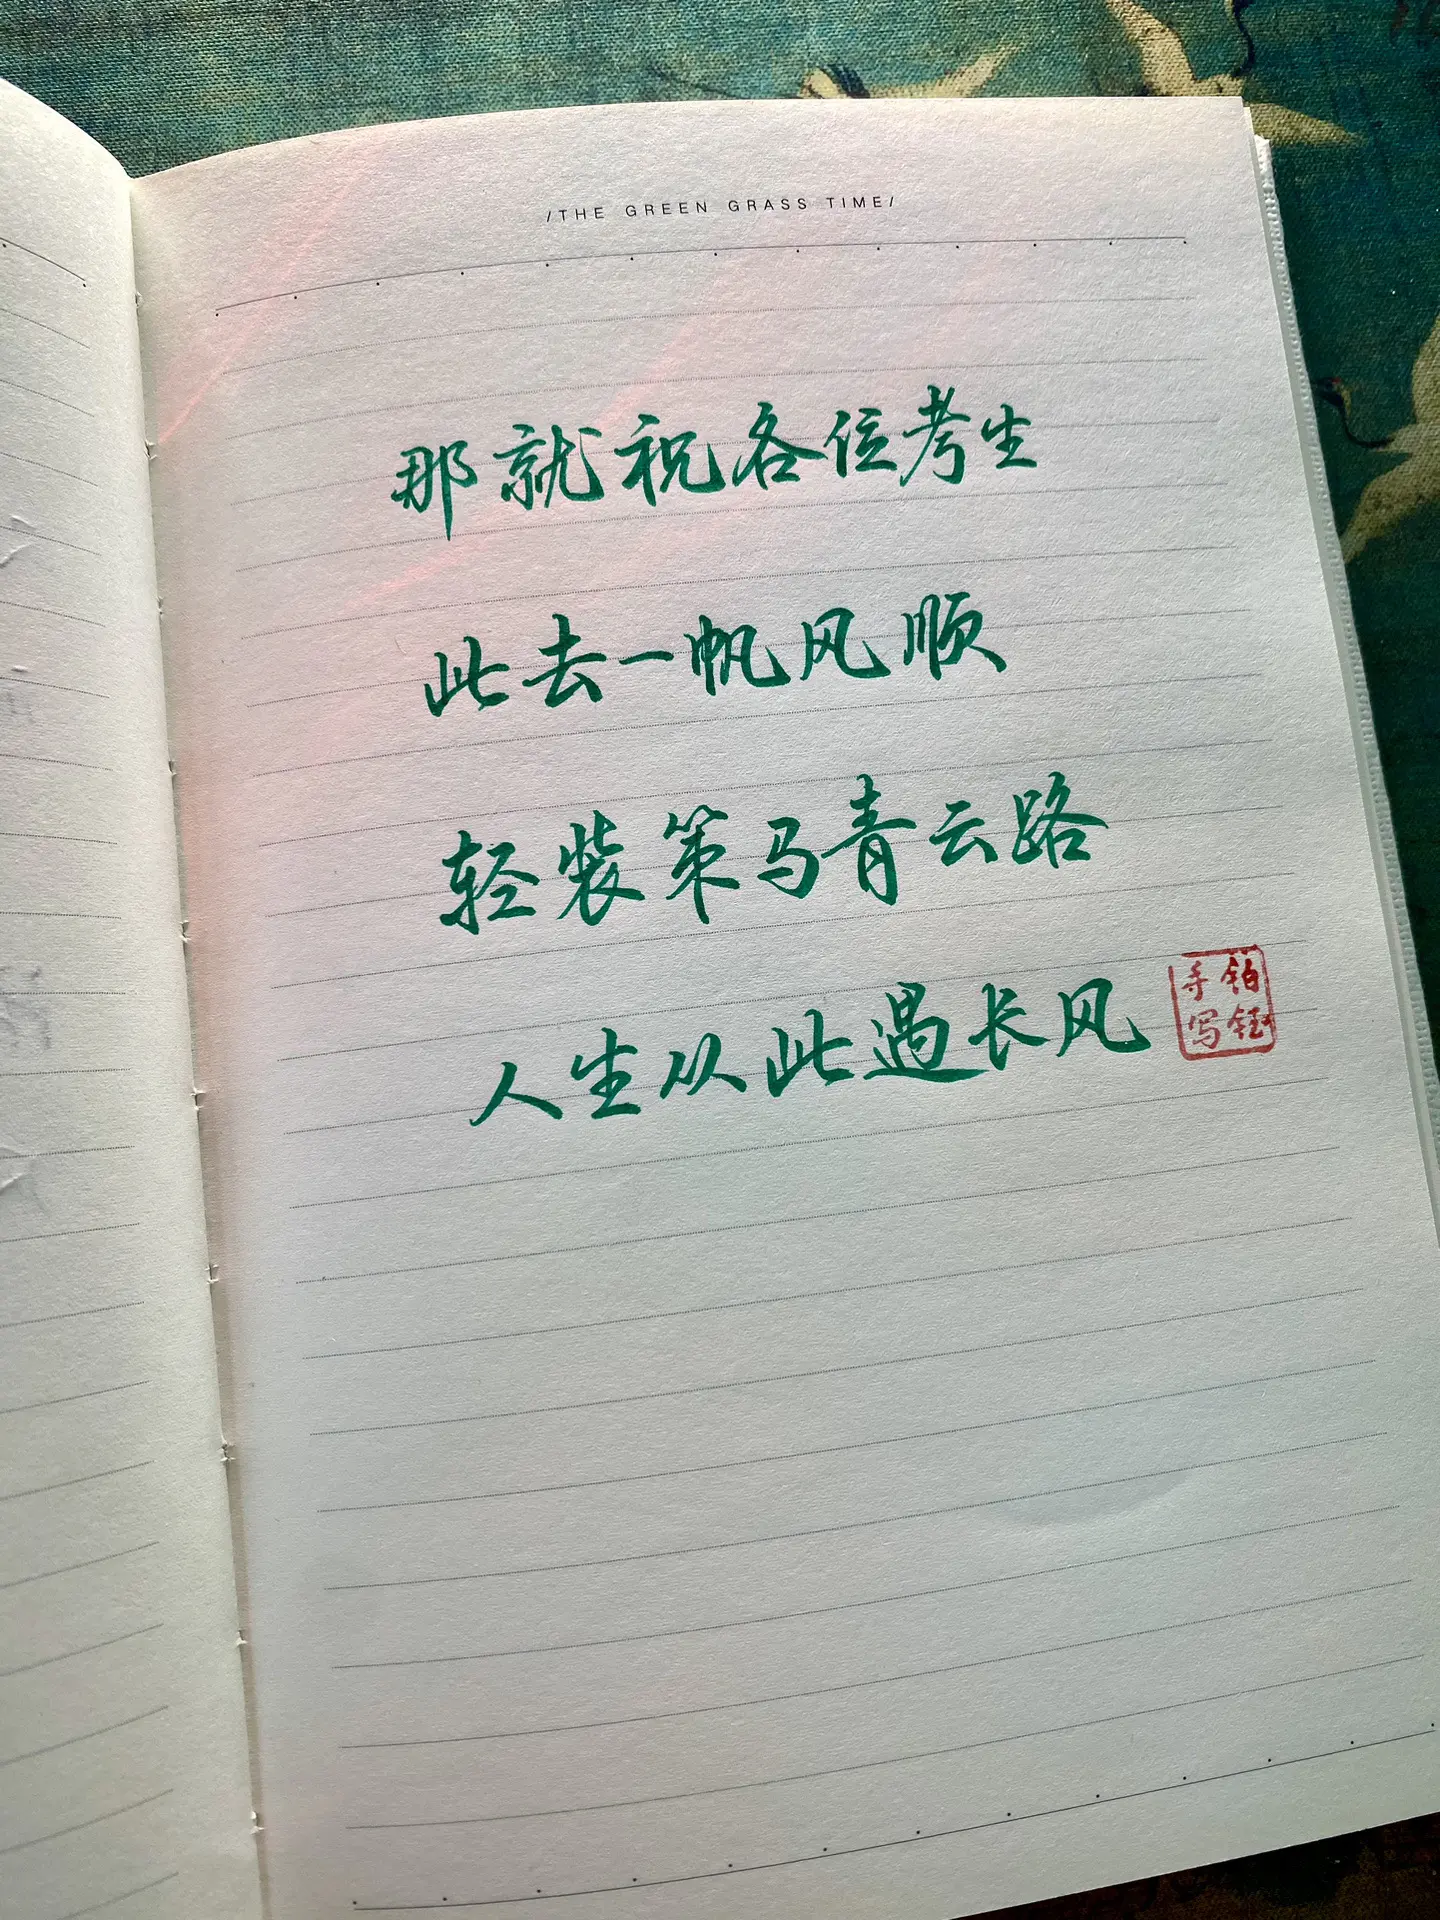 /THE GREEN GRASS TIME/
那就祝各位考生
此去一帆风顺
轻装策马青云路
人生从此遇长风
铂钰
手写